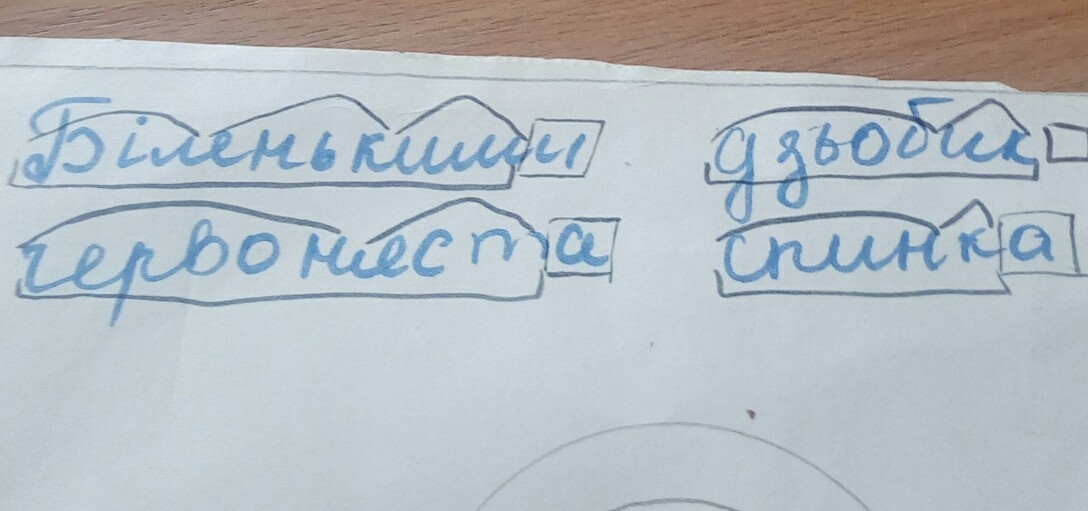 Біленькими дзьобик
червоняста спинка